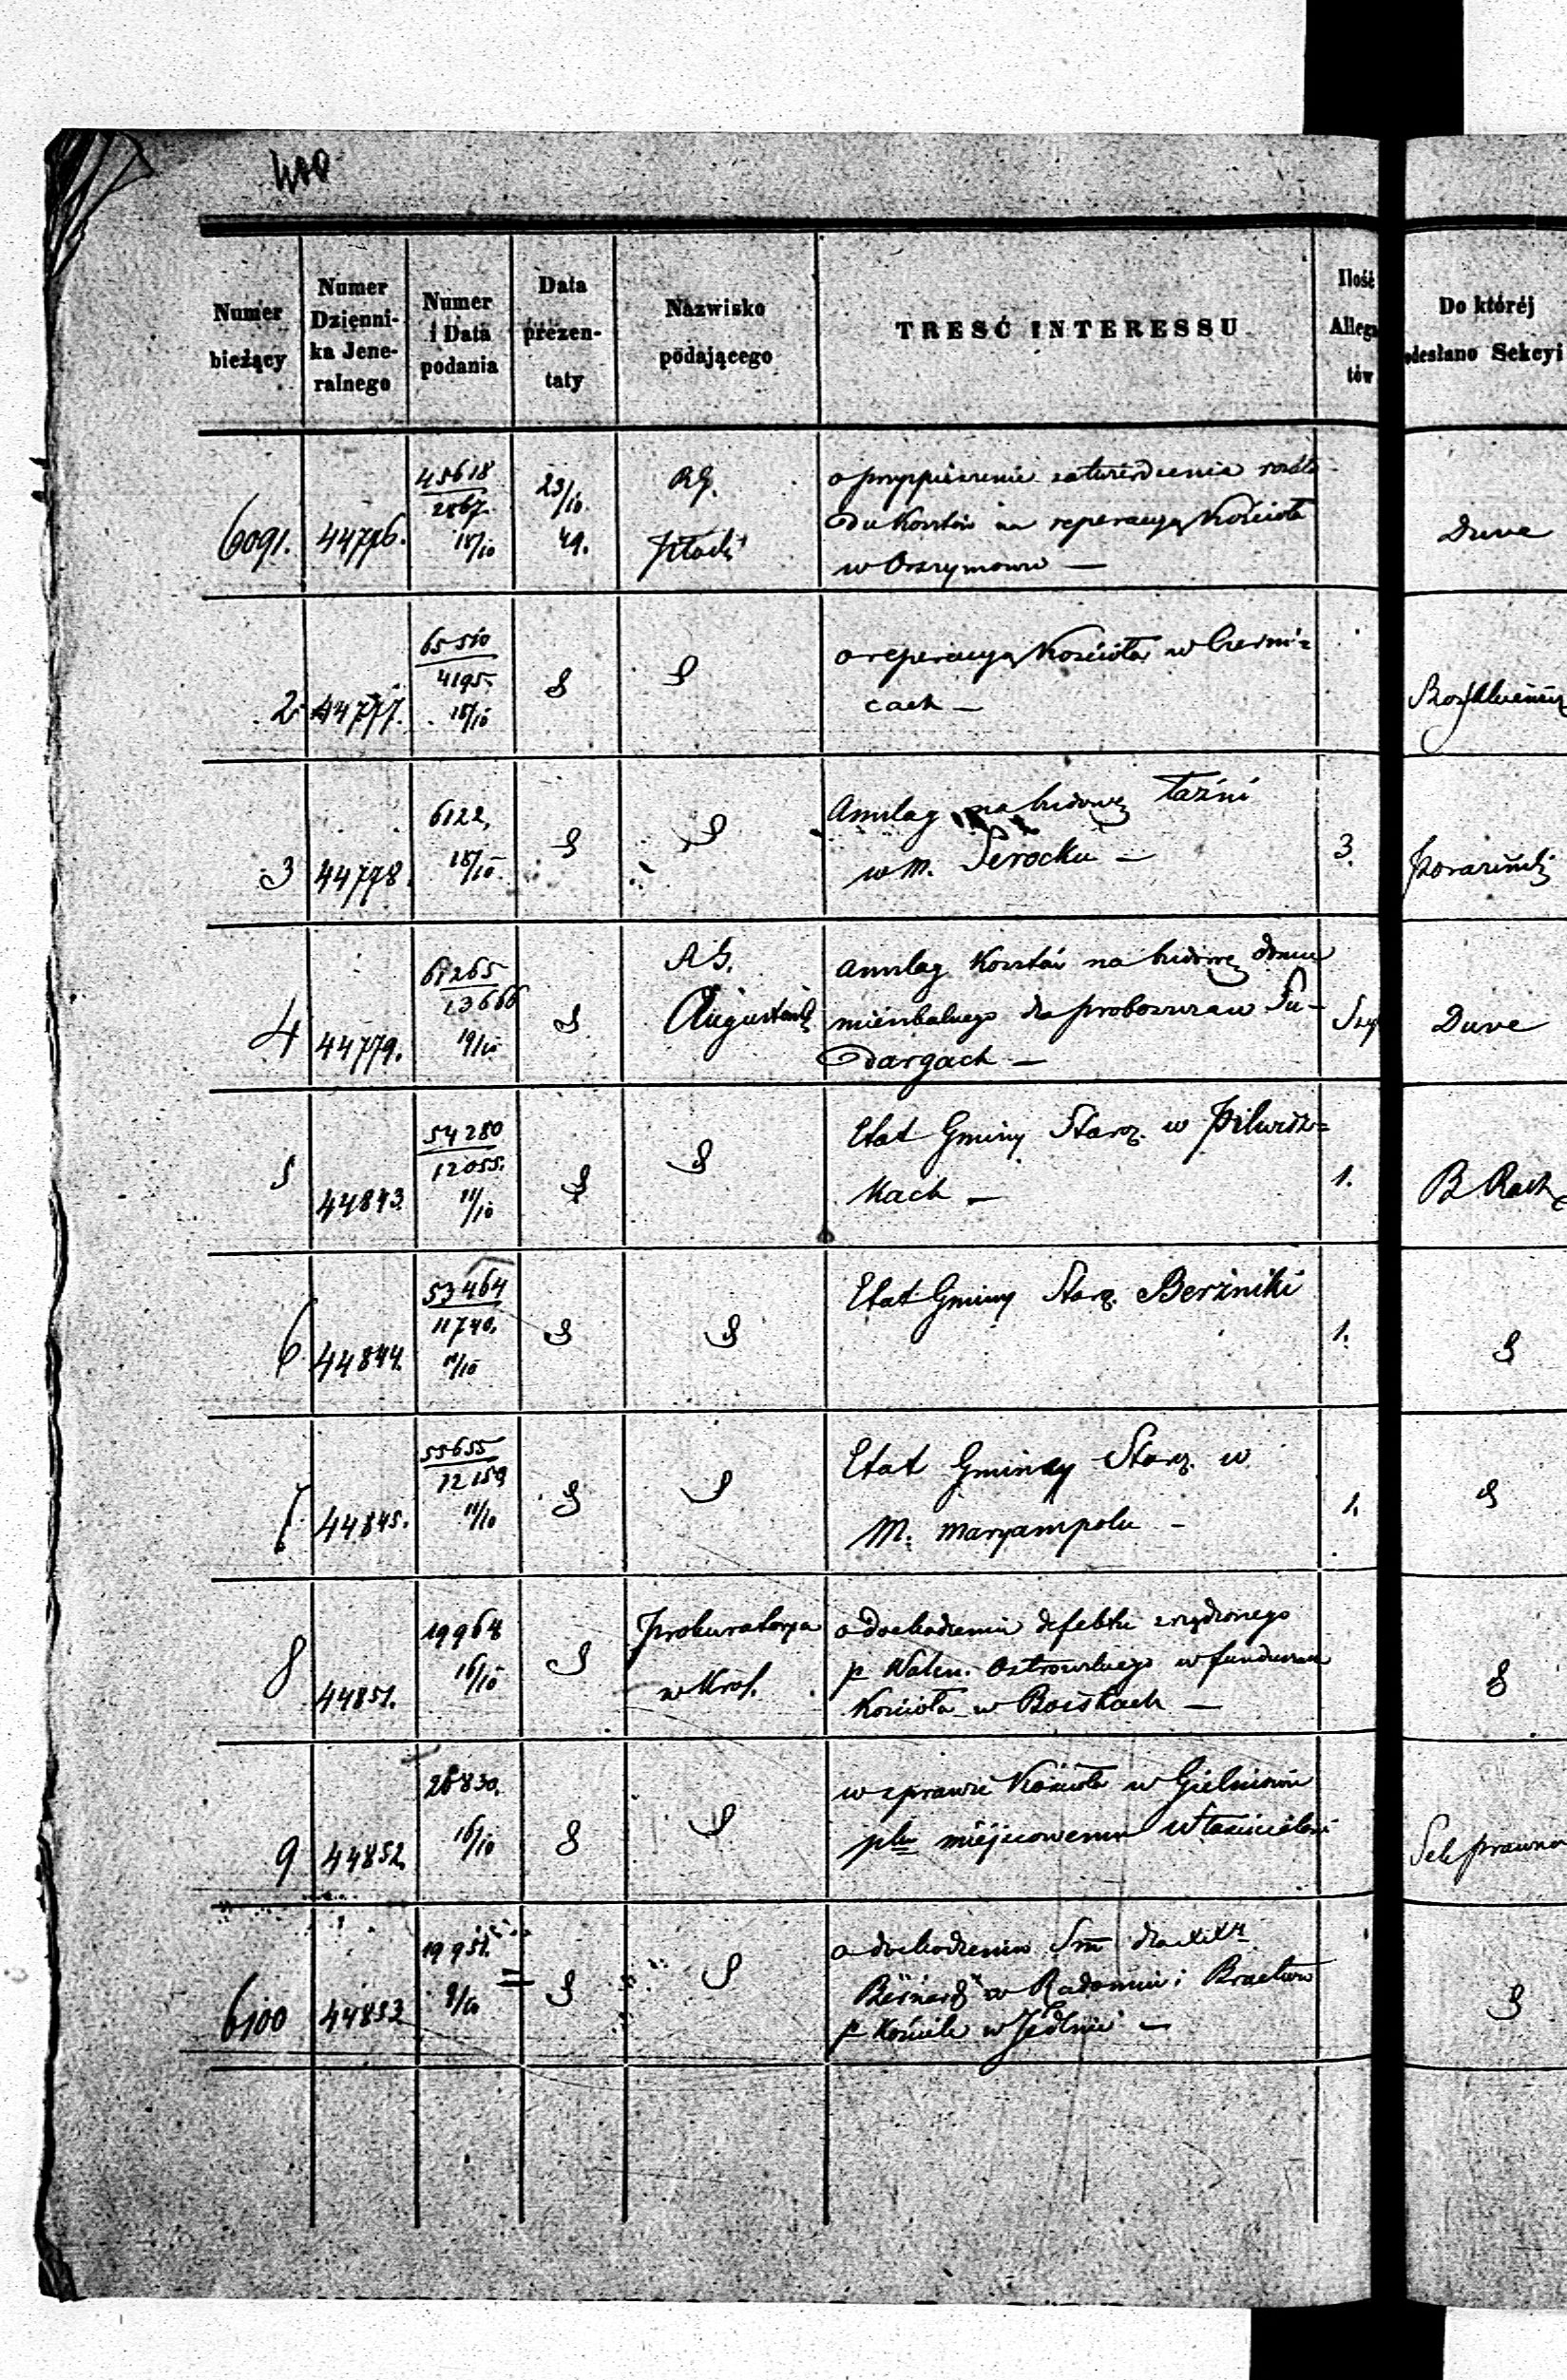 400
Numer bieżący
Numer Dzienni-ka Jene-ralnego
Numer i Data podania
Data prezen-taty
Nazwisko podającego
TRESĆ INTERESSU
Ilość Allega tów
Do któréj odesłano Sekcyi
6091. 44776. 45618 / 2867. 18/10 23/10. 49. RG. Płocki
o przyspieszenie zatwierdzenia rozkła-
du kosztów na reperacyą Kościoła
w Orszymowie —
Duve
2. 44777. 65510 / 4195. 18/10
o reperacyą Kościoła w Czerni=
cach —
3 44778. 6122, 18/10
Anszlag na budowę łaźni
w M. Serocku — 3.
4 44779. 61265 / 13666 19/10 R G. Augustowski
Anszlag Kosztów na budowę domu
mieszkalnego dla proboszcza w Su-
dargach —
Duve
5 44843. 54280 / 12055. 11/10
Etat Gminy Staroz. w Pilwisz=
kach — 1.
B Rach
6 44844. 53464 / 11740. 11/10
Etat Gminy Staroz. Berżniki 1.
7. 44845. 55655 / 12159 11/10
Etat Gminy Staroz. w
M. Maryampolu - 1.
8 44851. 19964 16/10 Prokuratorya w Król.
o dochodzeniu defektu zrządzonego
p Walen. Ostrowskiego w funduszach
Kościoła w Boiskach —
9 44852. 26830. 16/10
w sprawie Kościoła w Gielniowie
plko miejscowemu Właścicielowi
Sek prawna
6100 44853 19951. 9/10
o dochodzeniu Sm dla XX
Bernard w Radomiu i Bractwa
p Kościele w Jedlni —